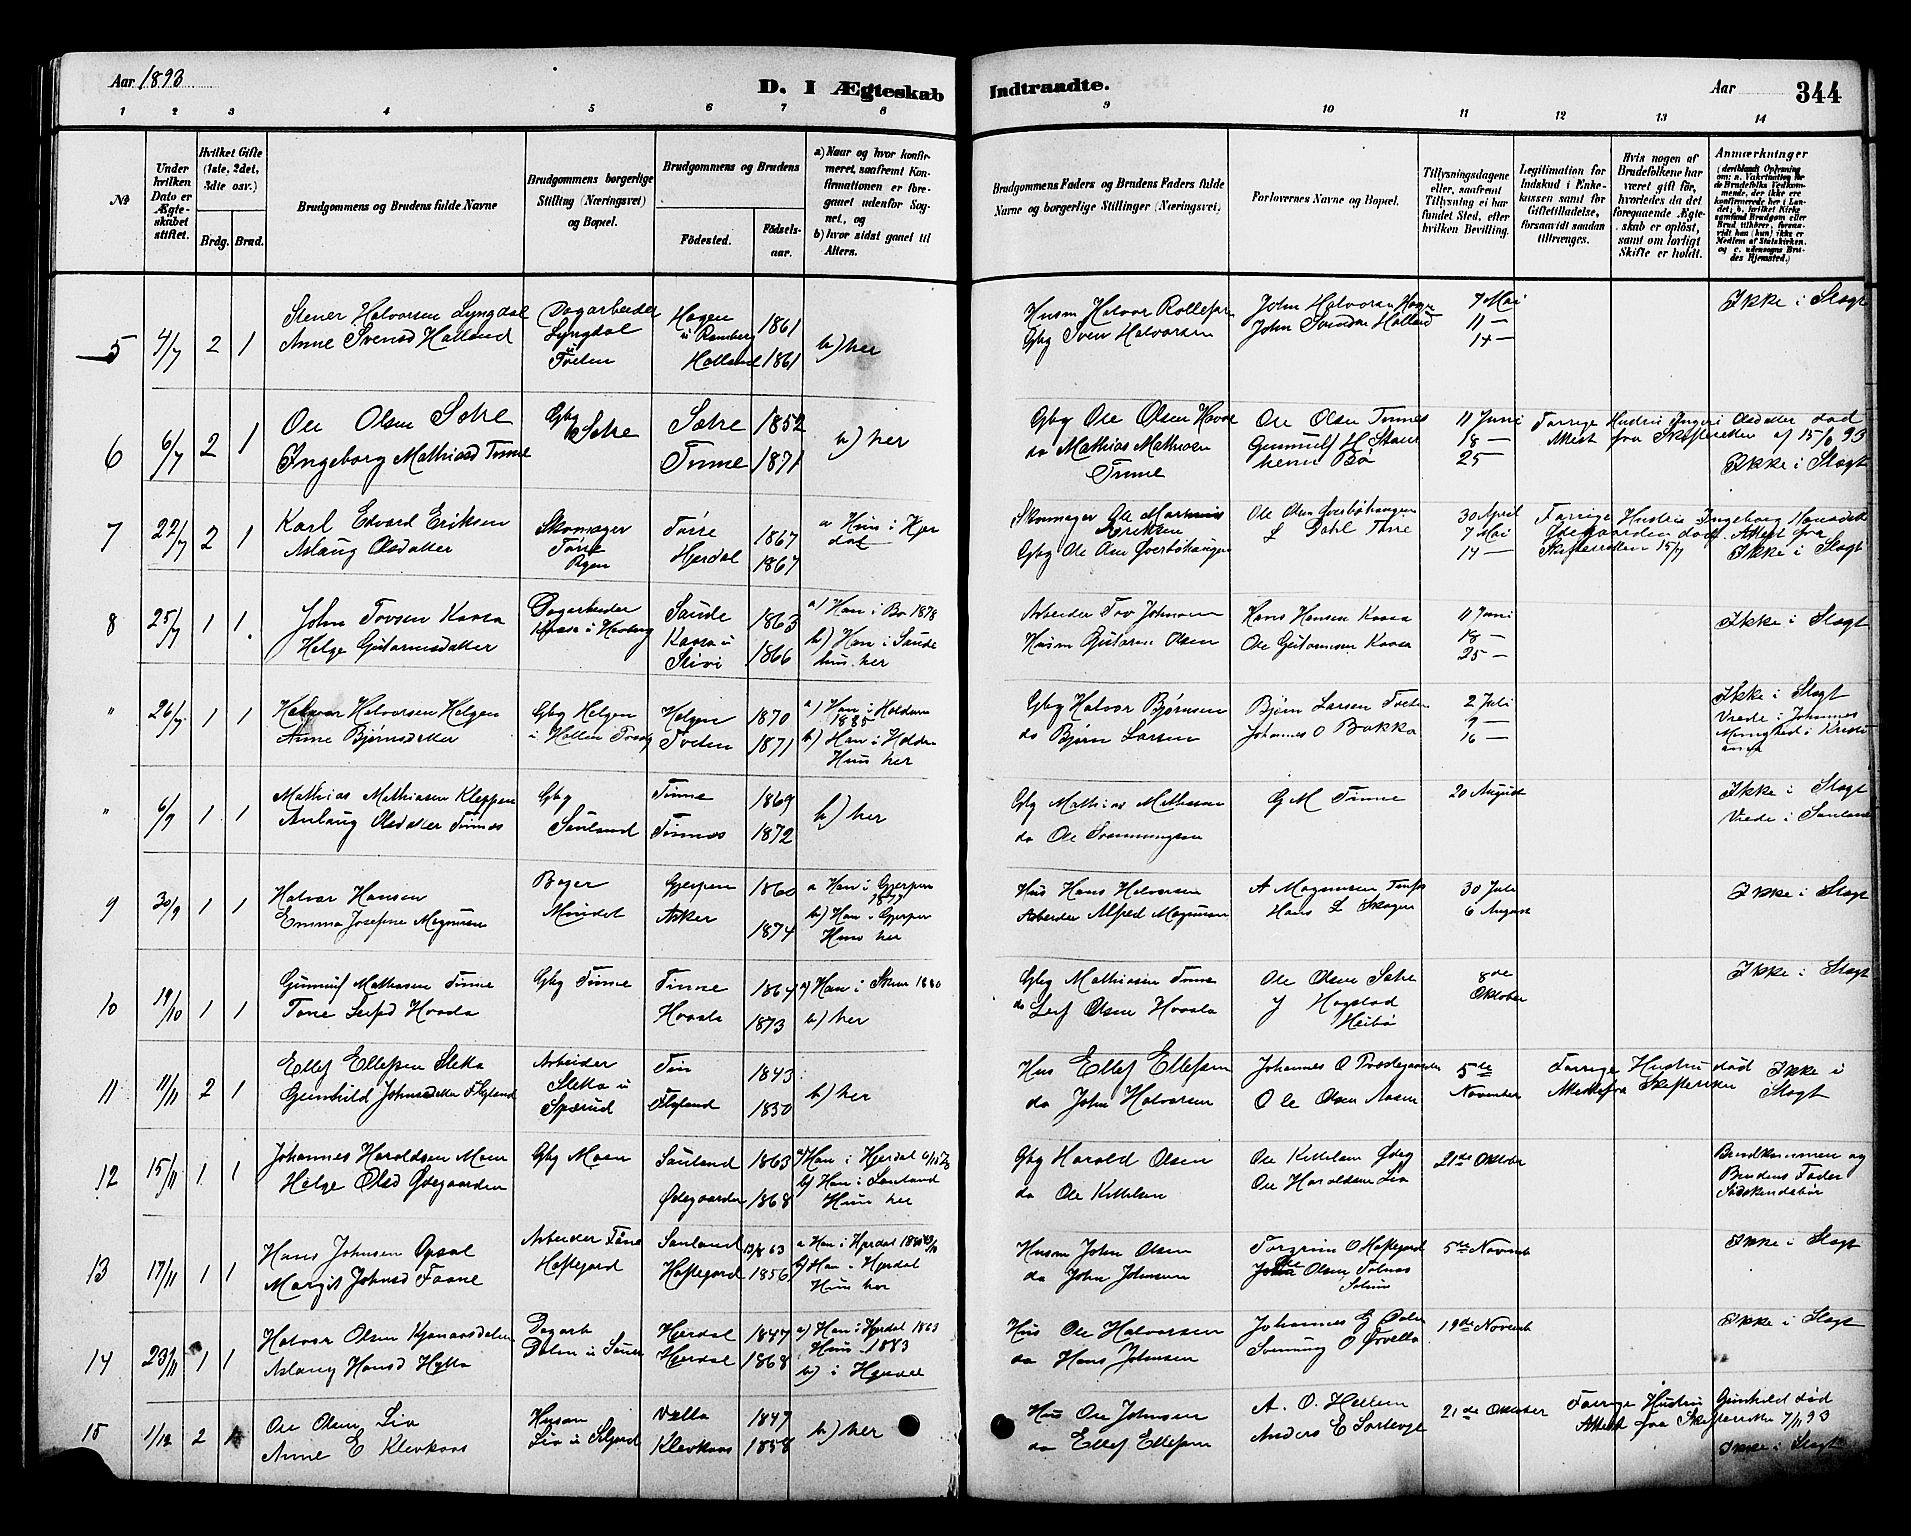 Aar 1893
D. I Ægteskab Indtraadte.
Aar 344
1 2 3 4 5 6 7 8 9 10 11 12 13 14
No
Under hvilken Dato er Ægteskabet stiftet.
Hvilket Gifte (1ste, 2det, 3die osv.)
Brdg. Brud.
Brudgommens og Brudens fulde Navne
Brudgommens borgerlige Stilling (Næringsvei) og Bopæl.
Brudgommens og Brudens
Födested.
Födselsaar.
a) Naar og hvor konfirmeret, saafremt Konfirmationen er foregaaet udenfor Sognet, og
b) hvor sidst gaaet til Alters.
Brudgommens Faders og Brudens Faders fulde Navne og borgerlige Stillinger (Næringsvei)
Forlovernes Navne og Bopæl.
Tillysningsdagene eller, saafremt Tillysning ei har fundet Sted, efter hvilken Bevilling.
Legitimation for Indskud i Enkekassen samt for Giftetilladelse, forsaavidt saadan tiltrænges.
Hvis nogen af Brudefolkene har været gift för, hvorledes da det foregaaende Ægteskab er oplöst, samt om lovligt Skifte er holdt.
Anmærkninger
5 4/7 2 1
Stener Halvorsen Lyngdal
Anne Svensd Halland
Dagarbeider
Lyngdal
Tveten
Hagen
i Ramberg 1861
Halland 1861
b) her
Husm Halvor Rollefsen
Gbg Sven Halvorsen
John Halvorsen Hagen
John Svendsen Halland
7 Mai
11 —
14 —
Ikke i Slægt
6 6/7 2 1
Ole Olsen Sætre
Ingeborg Mathiasd Tinne
Gbg
Sætre
Sætre 1852
Tinne 1871
b) her
Gbg Ole Olsen
do Mathias Mathiasen
Tinne
Ole Olsen Tinnes
Gunnulf H
Bø
11 Juni
18 —
25 —
Forrige Hustru Olsdatter död
Attest fra Skifteretten af 15/6 93
Ikke i Slægt
7 22/7 2 1
Karl Edvard Eriksen
Aslaug Olsdatter
Skomager
1867
Hjerdal 1867
a Hun i Hjerdal
Skomager Ole
Eriksen
Gbg Ole Olsen Øverbøhaugen
Ole Olsen Øverbøhaugen
L Dahl
30 April
7 Mai
14 —
Forrige Hustru Ingeborg
Ødegaarden död Attest fra
Skifteretten 15/7 Ikke i Slægt
8 25/7 1 1
John Tovsen Kaasa
Helge Guttormsdatter
Dagarbeider
Kaasa i
Saude 1863
Kaasa i 1866
a) Han i Bø 1878
b) Han i Saude
hun her
Arbeider Tov Johnsen
Husm Guttorm Olsen
Hans Hansen Kaasa
Ole Guttormsen Kaasa
11 Juni
18 —
25 —
Ikke i Slægt
" 26/7 1 1
Halvor Halvorsen Helgen
Anne Bjørnsdatter
Gbg Helgen
i Hollen
Helgen 1870
Tveten 1871
a) Han i Holden
1885
b) Han i Holden
Hun her
Gbg Halvor Bjørnsen
do Bjørn Larsen
Bjørn Larsen Tveten
Johannes O Bakka
2 Juli
9 —
16 —
Ikke i Slægt
Viede i Johannes
Menighed i Kristiania
" 6/9 1 1
Mathias Mathiasen Kleppen
Aslaug Olsdatter Tinnes
Gbg
Sauland
Tinne 1869
Tinnes 1872
b) her
Gbg Mathias Mathiasen
do Ole
G M Tinne
20 August
Ikke i Slægt
Viede i Sauland
9 30/9 1 1
Halvor Hansen
Emma Josefine Magnusen
Bager
Gjerpen 1860
Asker 1874
a Han i Gjerpen
b) Han i Gjerpen
Hun her
Hus Hans Halvorsen
Arbeider Alfred Magnusen
A Magnusen
Hans L Skogen
30 Juli
6 August
Ikke i Slægt
10 19/10 1 1
Gunnuf Mathiasen Tinne
Tone
Gbg Tinne
Tinne 1864
1873
a) Han i Skien 1880
b) her
Gbg Mathiasen Tinne
do Leif Olsen
Ole Olsen Sætre
J Hagstad
Heibø
8de
Oktober
Ikke i Slægt
11 11/11 2 1
Ellef Ellefsen Sletta
Gunhild Johnsdatter Flyland
Arbeider
Sletta i
Tin 1843
Flyland 1850
b) her
Hus Ellef Ellefsen
do John Halvorsen
Johannes O
Ole Olsen Aasen
5de
November
Forrige Hustru död
Skifteretten
Ikke i
Slægt
12 15/11 1 1
Johannes Haroldsen Moen
Helge Olsd Ødegaarden
Gbg Moen
Sauland 1863
Ødegaarden 1868
a) Han i Hjerdal
b) Han i Sauland
Hun her
Gbg Harold Olsen
do Ole Kittelsen
Ole Kittelsen Ødeg
Ole Haroldsen Lia
21de Oktober
Brudkommen og
Brudens Fader
Södskendebör
13 17/11 1 1
Hans Johnsen Opsal
Margit Johnsd Faane
Arbeider
Sauland 63
1856
a Han i Hjerdal
b) Han i Hjerdal
Hun her
Husm John Olsen
do John Johnsen
Torgrim O
Olsen
5te November
Ikke i Slægt
14 23/11 1 1
Halvor Olsen
Aslaug Hansd Hytta
Dagarb
Dalen
Hjerdal 1847
Hjerdal 1868
a) Han i Hjerdal 1863
Hun 1883
b) i Hjerdal
Hus Ole Halvorsen
do Hans Johnsen
Johannes G Dalen
Svenning O Ørvella
19de November
Ikke i Slægt
15 1/12 2 1
Ole Olsen Lia
Anne E Klevkaas
Lia
Vælla 1847
Klevkaas 1858
b) her
Hus Ole Johnsen
do Ellef Ellefsen
A. O. Hellem
Anders E
21de Oktober
Forrige Hustru Gunhild död
Attest fra Skifteretten 7/11 93
Ikke i Slægt